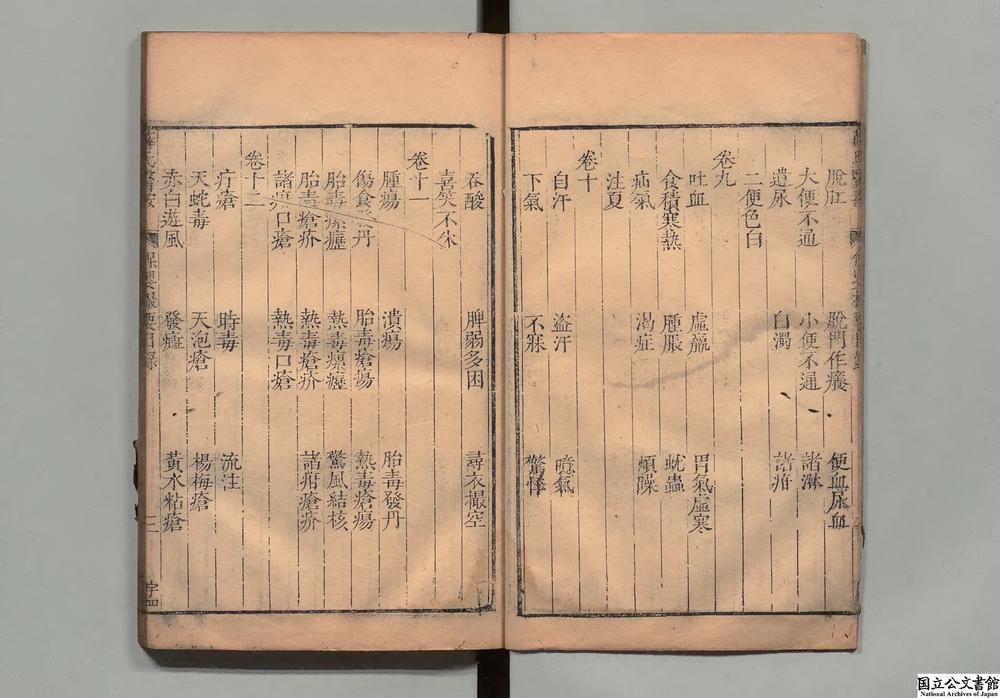 脫肛 脫門作癢 便血尿血
大便不通 小便不通 諸淋
遺尿 白濁 諸疳
二便色白
卷九
吐血 虛羸 胃氣虛寒
食積寒熱 腫脹 蚘蟲
疝氣 渴症 煩躁
注夏
卷十
自汗 盜汗 噫氣
下氣 不寐 驚悸
吞酸 脾弱多困 尋衣撮空
喜笑不休
卷十一
腫瘍 潰瘍 胎毒發丹
傷食發丹 胎毒瘡瘍 熱毒瘡瘍
胎毒瘰癧 熱毒瘰癧 驚風結核
胎毒瘡疥 熱毒瘡疥 諸疳瘡疥
諸疳口瘡 熱毒口瘡
卷十二
疔瘡 時毒 流注
天蛇毒 天泡瘡 楊梅瘡
赤白遊風 發癍 黃水粘瘡
保嬰撮要目錄
二
字四
国立公文書館
National Archives of Japan